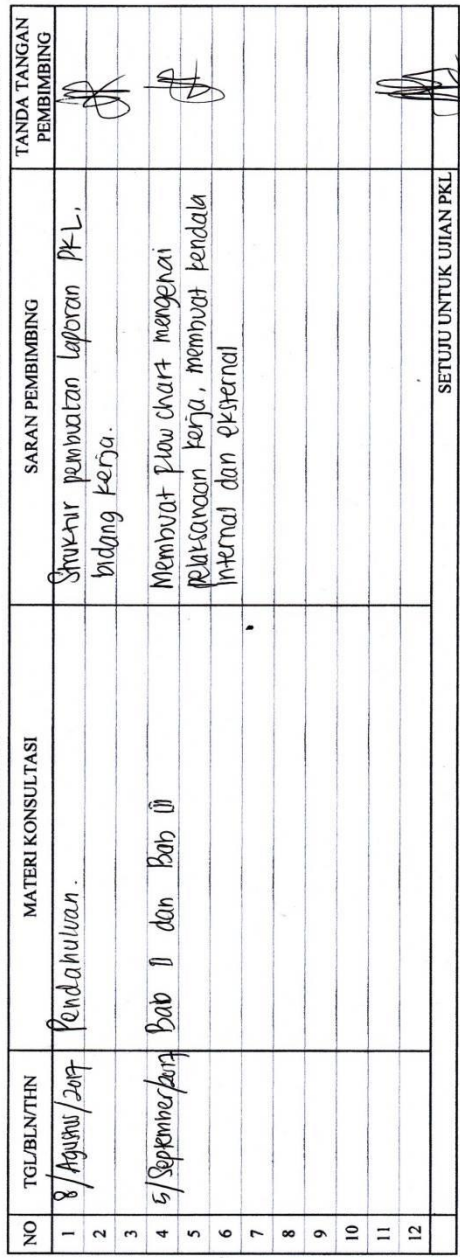 NO TGL/BLN/THN MATERI KONSULTASI SARAN PEMBIMBING TANDA TANGAN PEMBIMBING
1 8/Agustus/2017 Pendahuluan. Struktur pembuatan laporan PKL,
2 bidang kerja.
3
4 5/September/2017 Bab II dan Bab III Membuat flow chart mengenai
5 pelaksanaan kerja, membuat kendala
6 internal dan eksternal
7
8
9
10
11
12
SETUJU UNTUK UJIAN PKL